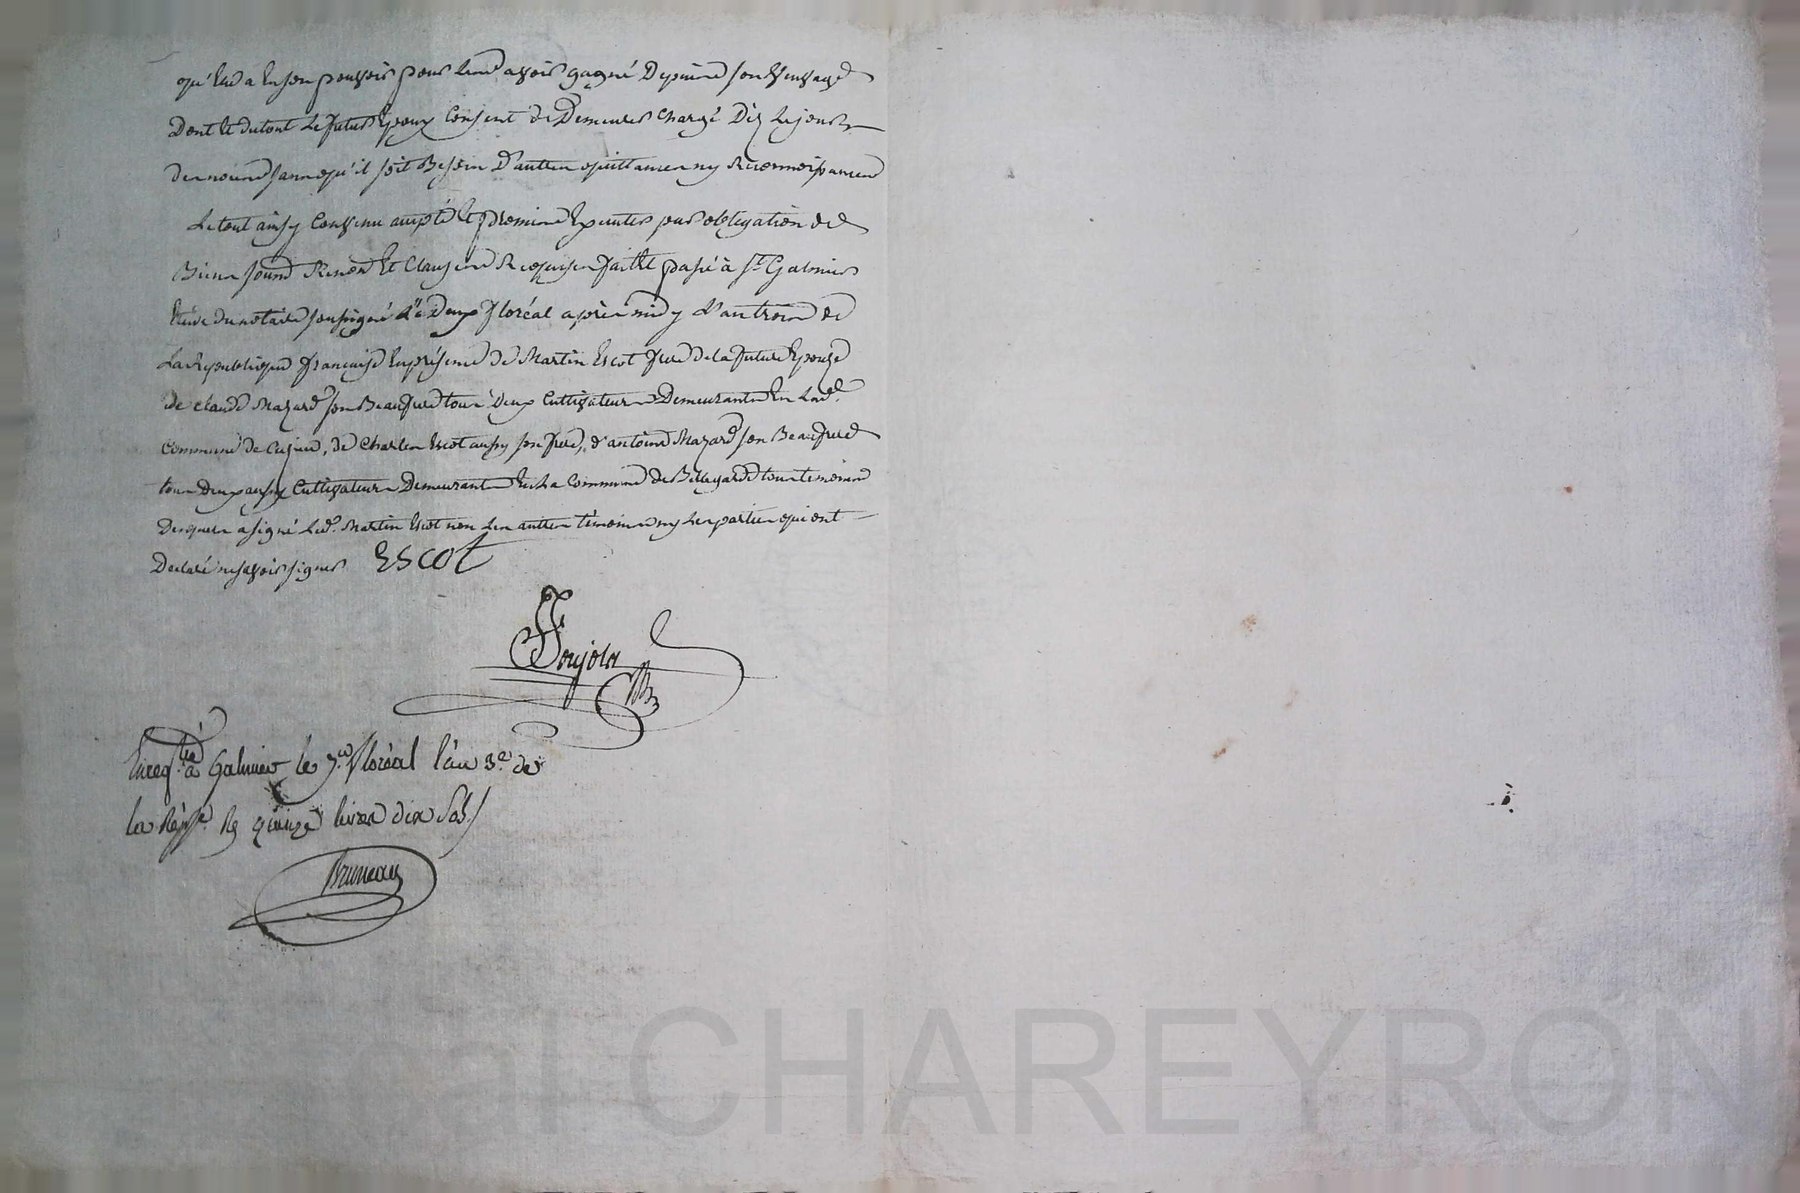 qu'elle a en son pouvoir pour les avoir gagné depuis son veuvage
Dont et du tout le futur Epoux Consent de Demeurer chargé Dez le jour
des noces sans qu'il soit Besoin D'autres quittances ny Reconnoissances
Le tout ainsy Convenu accepté et promis Executer par obligation de
Biens soumis Renon et Clauses Requises fait et passé à St. Galmier
Etude du notaire soussigné Le Deux floréal après midy L'an trois de
La Republique française En présence de Martin Escot frere de la future Epouse
de Claude Mazard son Beaufrere tous Deux Cultivateurs Demeurants En Lade.
Commune de Cuzieu, de Charles Escot aussy son frere, d'antoine Mazard son Beaufrere
tous Deux aussy Cultivateurs Demeurants En La Commune de Bellegarde tous temoins
Desquels a signé Led. Martin Escot non Les autres témoins ny Les parties qui ont
Declaré ne savoir signer Escot
Poujolas
Enregtré à Galmier le 7e. floréal l'an 3e. de
la Répe. Rç quinze livres dix Sols
Bruneau
al CHAREYRON